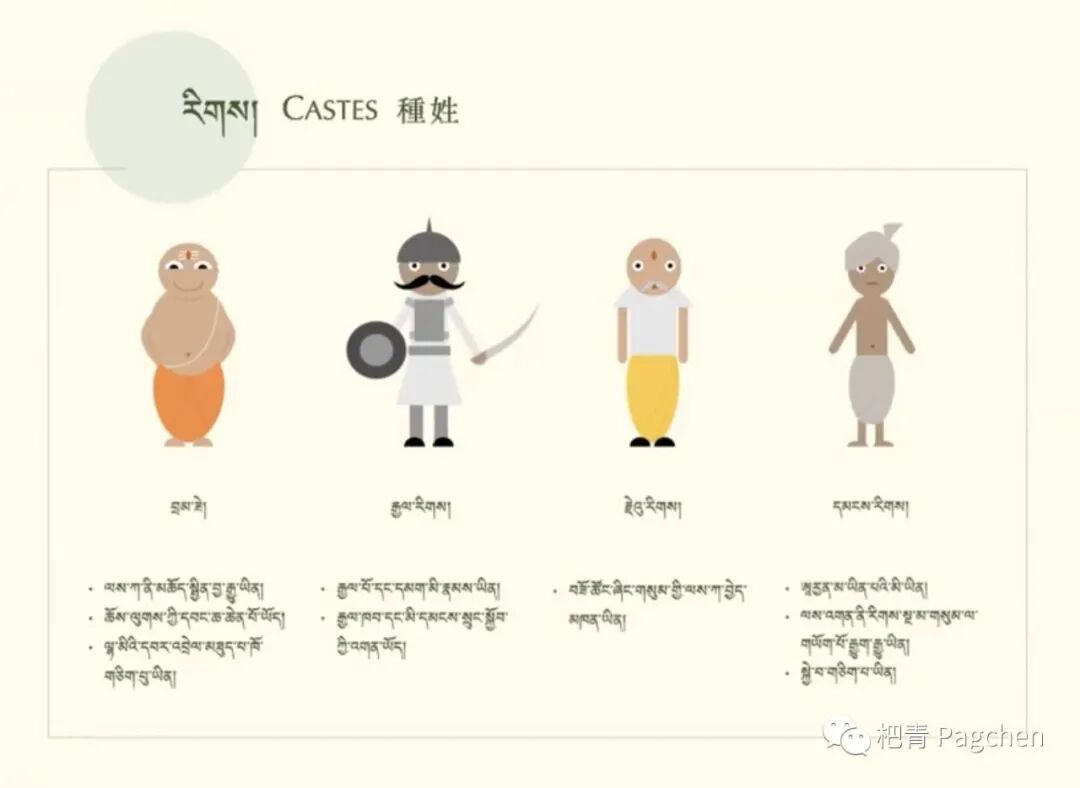 རིགས། CASTES 種姓
བྲམ་ཟེ།
རྒྱལ་རིགས།
རྗེའུ་རིགས།
དམངས་རིགས།
• ལས་ཀ་ནི་མཆོད་སྦྱིན་བྱ་རྒྱུ་ཡིན།
• ཆོས་ལུགས་ཀྱི་དབང་ཆ་ཆེན་པོ་ཡོད།
• ལྷ་མིའི་དབར་འབྲེལ་མཐུད་པ་ཁོ་
གཅིག་པུ་ཡིན།
• རྒྱལ་པོ་དང་དམག་མི་རྣམས་ཡིན།
• རྒྱལ་ཁབ་དང་མི་དམངས་སྲུང་སྐྱོབ་
ཀྱི་འགན་ཡོད།
• བཟོ་ཚོང་ཞིང་གསུམ་གྱི་ལས་ཀ་བྱེད་
མཁན་ཡིན།
• ཨཱརྱན་མ་ཡིན་པའི་མི་ཡིན།
• ལས་འགན་ནི་རིགས་སྔ་མ་གསུམ་ལ་
གཡོག་པོ་རྒྱུག་རྒྱུ་ཡིན།
• སྐྱེ་བ་གཅིག་པ་ཡིན།
杷青 Pagchen